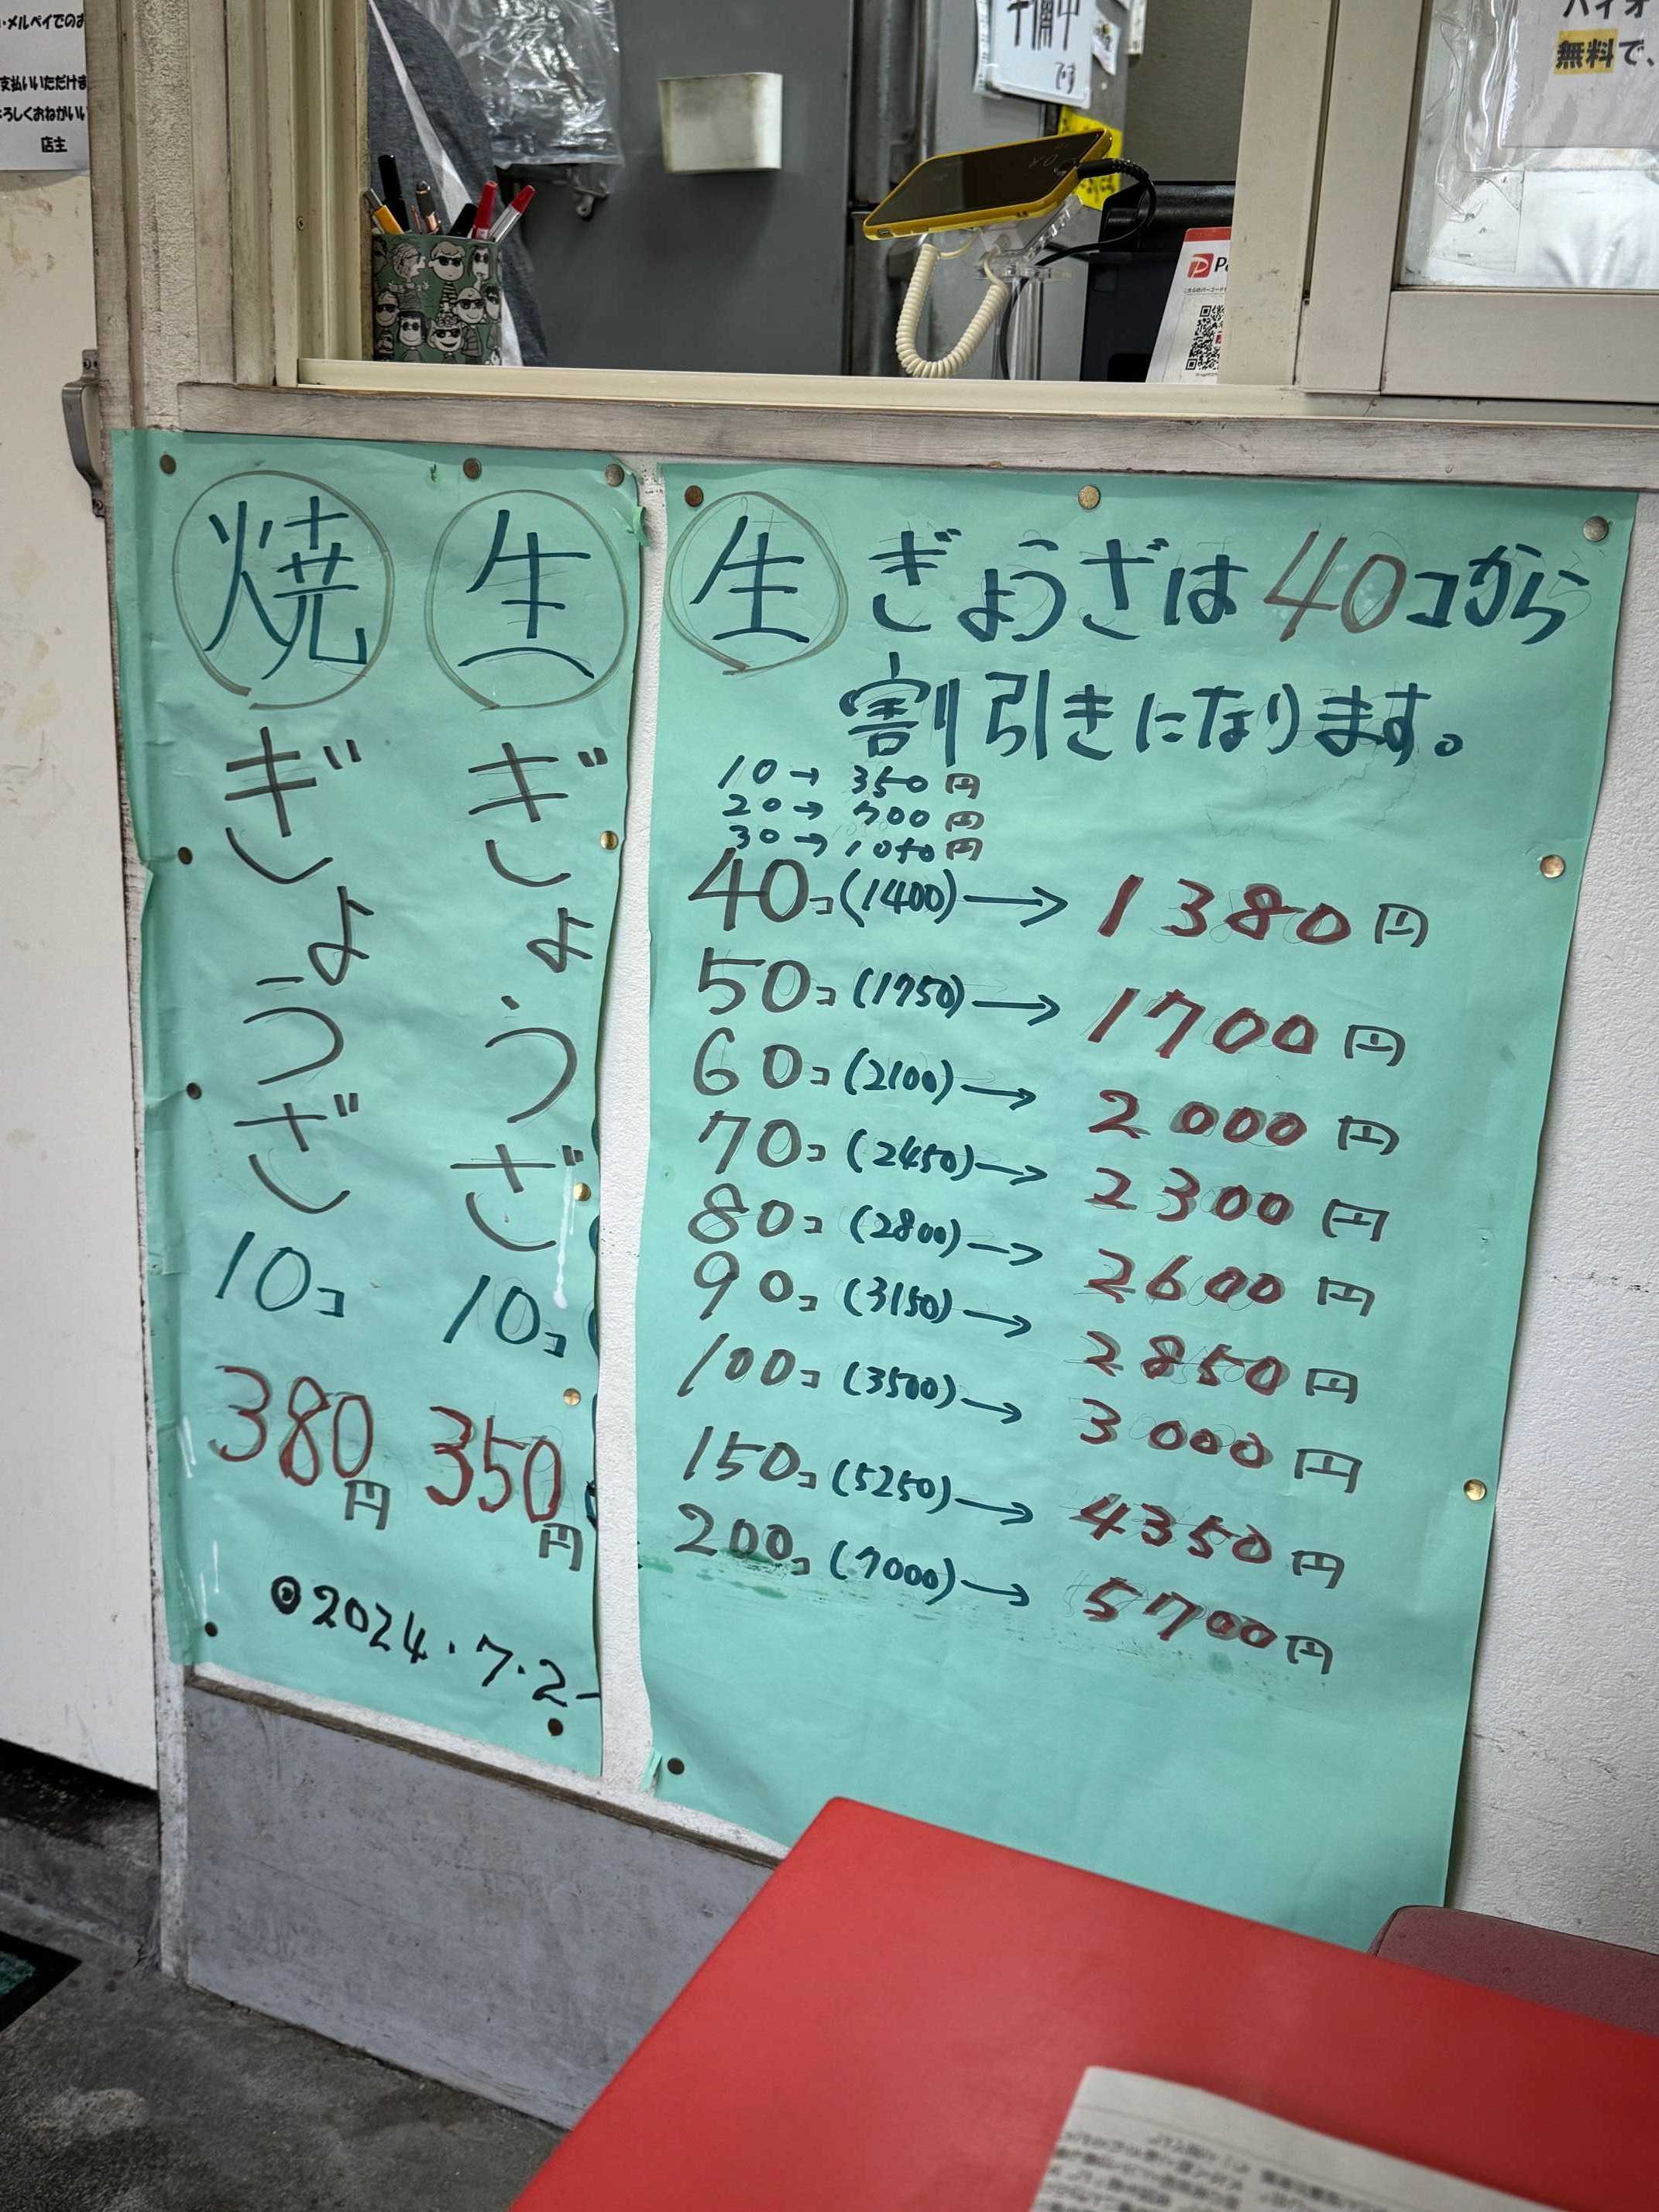 メルペイでのお
支払いいただけま
ろしくおねがいい
店主
準備中
です
無料で、
焼ぎょうざ
10コ
380円
生ぎょうざ
10コ
350円
◎2024.7.2-
生ぎょうざは40コから
割引きになります。
10→350円
20→700円
30→1050円
40コ(1400)→1380円
50コ(1750)→1700円
60コ(2100)→2000円
70コ(2450)→2300円
80コ(2800)→2600円
90コ(3150)→2850円
100コ(3500)→3000円
150コ(5250)→4350円
200コ(7000)→5700円